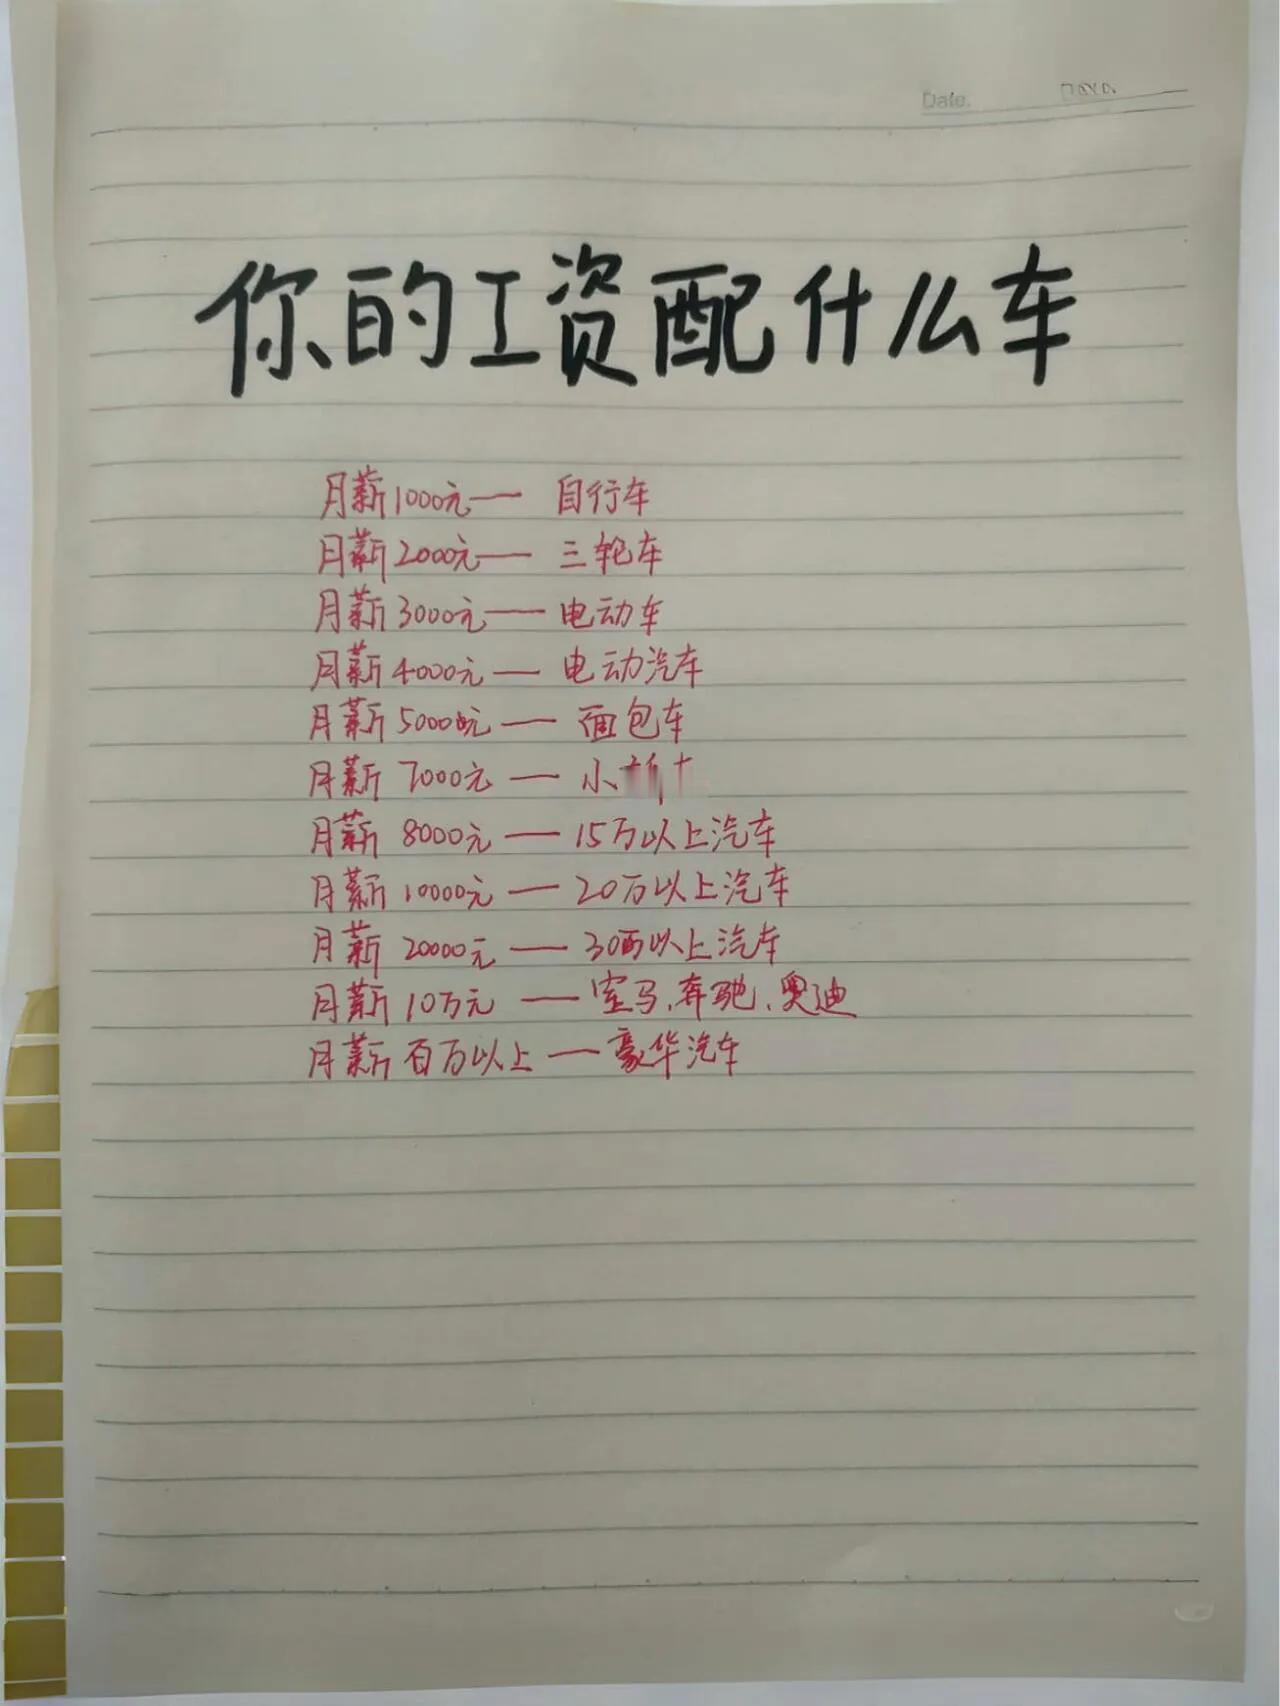 Date.
你的工资配什么车
月薪1000元— 自行车
月薪2000元— 三轮车
月薪3000元—电动车
月薪4000元—电动汽车
月薪5000元—面包车
月薪7000元—小
月薪8000元—15万以上汽车
月薪10000元—20万以上汽车
月薪20000元—30万以上汽车
月薪10万元—宝马、奔驰、奥迪
月薪百万以上—豪华汽车